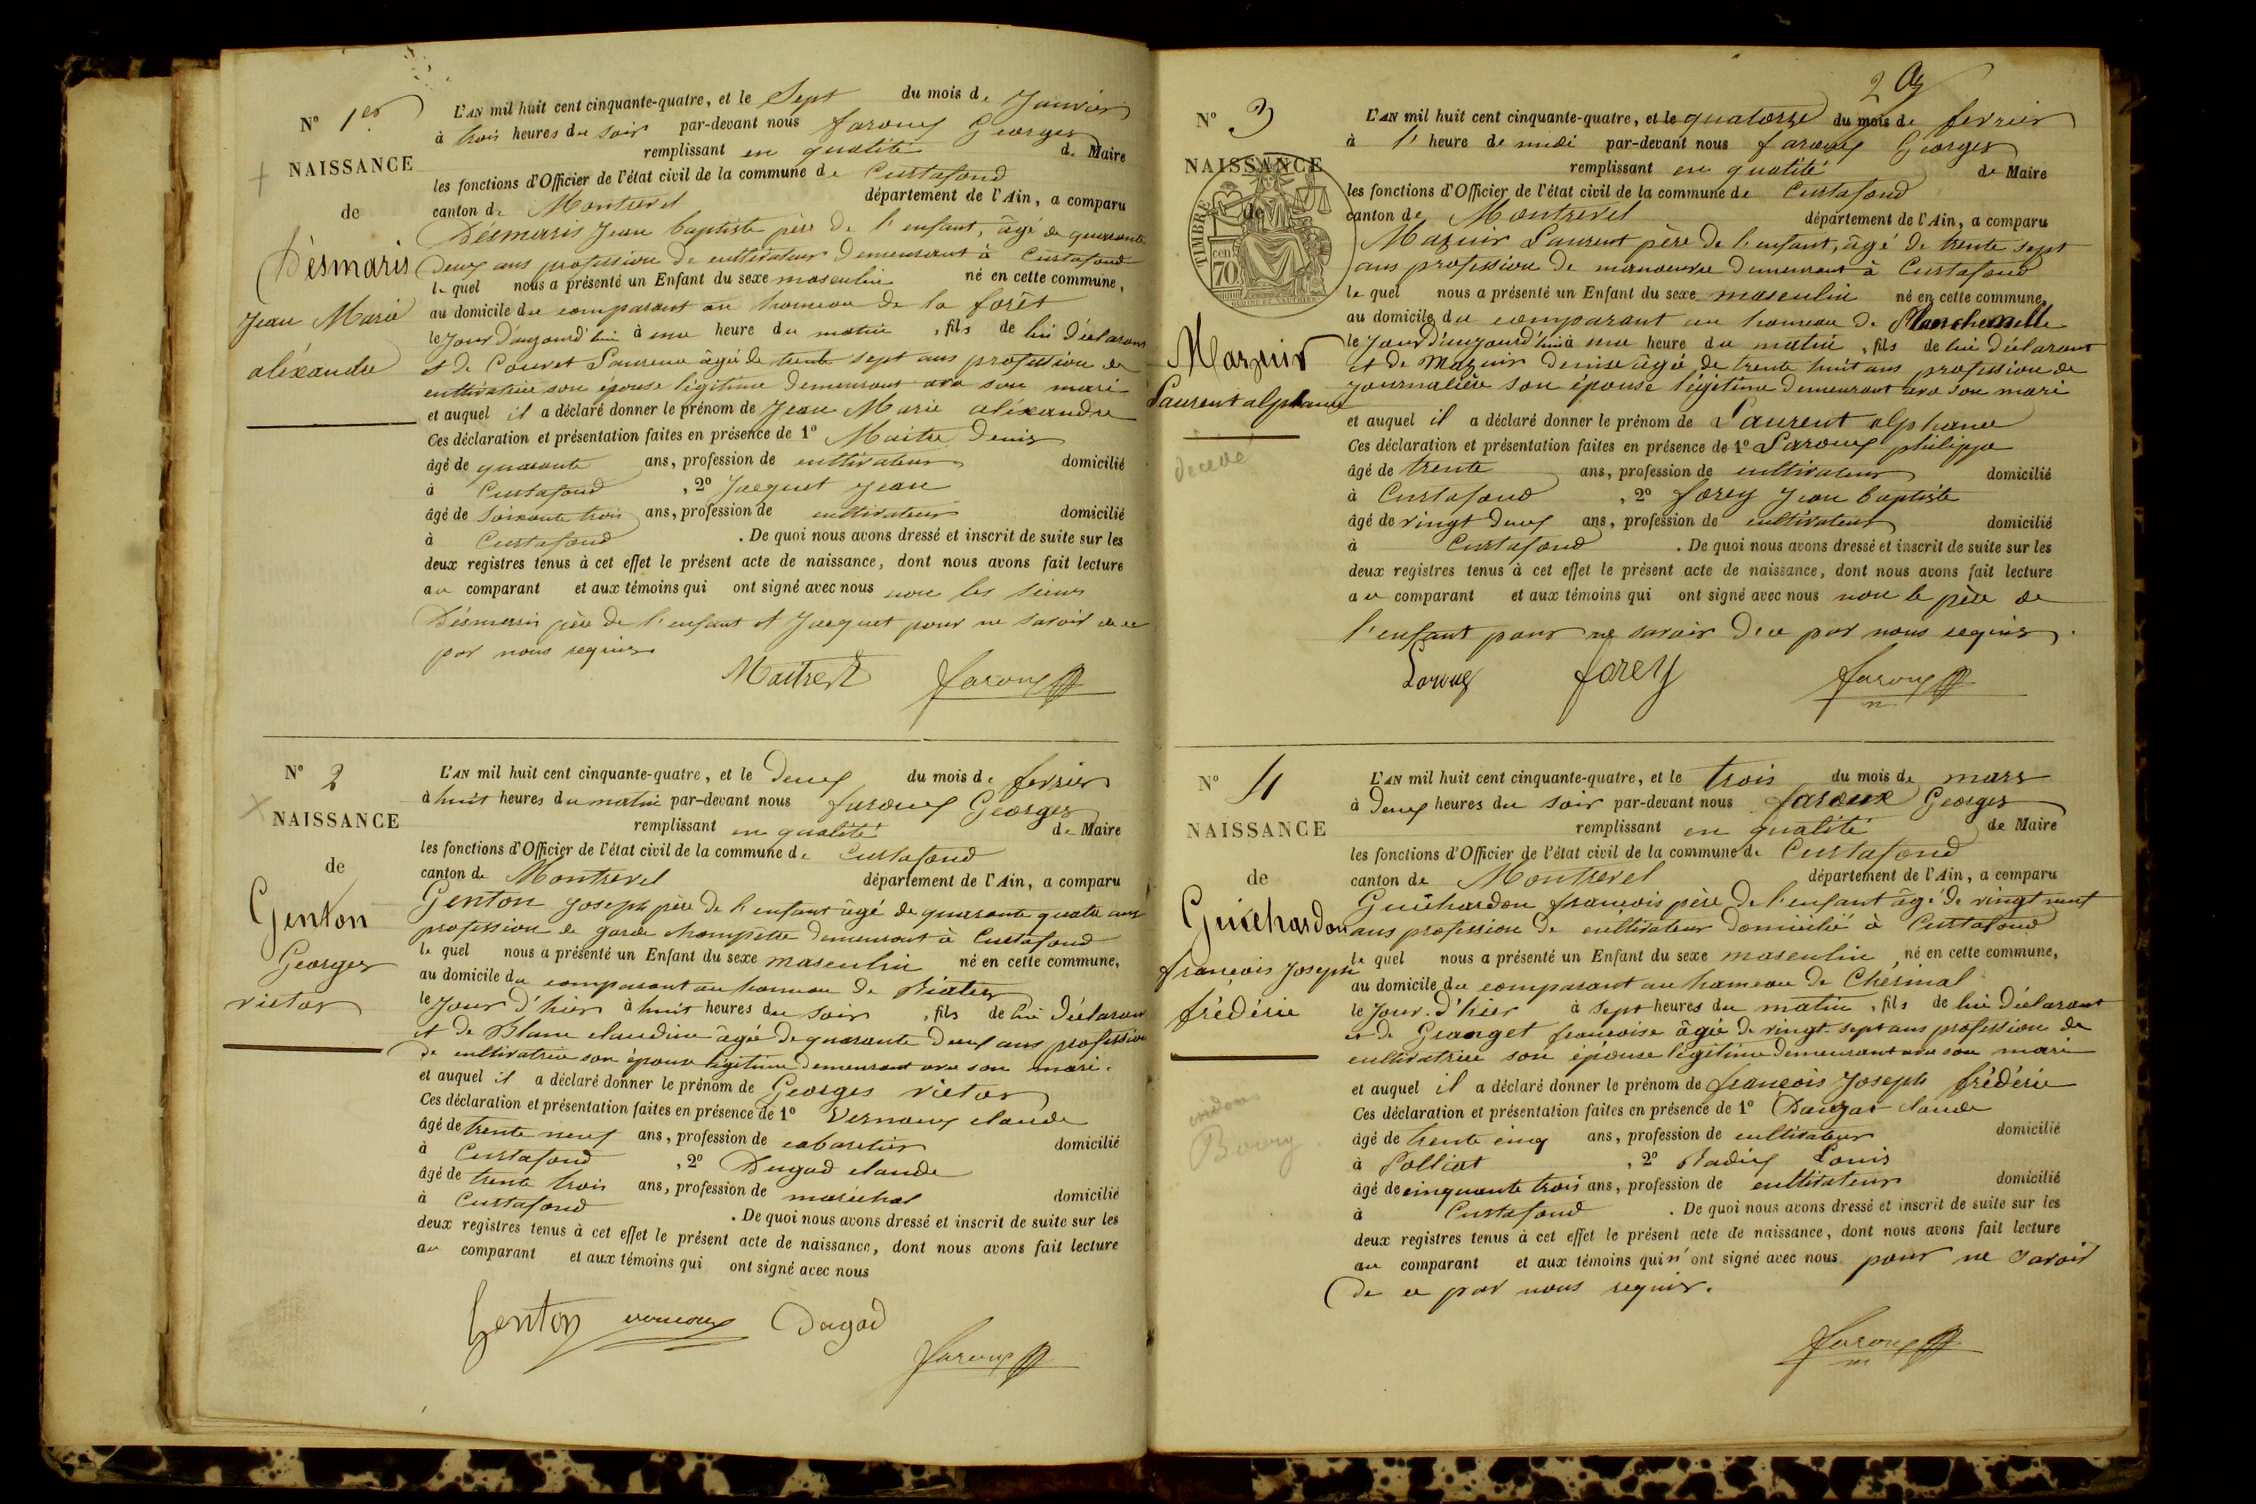 N° 1er
NAISSANCE
de
Désmaris
Jean Marie
aléxandre
L'AN mil huit cent cinquante-quatre, et le Sept du mois de Janvier
à trois heures du soir par-devant nous faroux Georges
remplissant en qualité de Maire
les fonctions d'Officier de l'état civil de la commune de Curtafond
canton de Montrevel département de l'Ain, a comparu
Désmaris Jean baptiste père de l'enfant, âgé de quarante
deux ans profession de cultivateur demeurant à Curtafond
lequel nous a présenté un Enfant du sexe masculin né en cette commune,
au domicile du comparant au hameau de la forêt
le Jour d'aujourd'hui à une heure du matin, fils de lui déclarant
et de Couvet âgée de trente sept ans profession de
cultivatrice son épouse légitime demeurant avec son mari
et auquel il a déclaré donner le prénom de Jean Marie aléxandre
Ces déclaration et présentation faites en présence de 1° Maitre Denis
âgé de quarante ans, profession de cultivateur domicilié
à Curtafond, 2° Jacquet Jean
âgé de Soixante trois ans, profession de cultivateur domicilié
à Curtafond. De quoi nous avons dressé et inscrit de suite sur les
deux registres tenus à cet effet le présent acte de naissance, dont nous avons fait lecture
au comparant et aux témoins qui ont signé avec nous non les sieurs
Désmaris père de l'enfant et Jacquet pour ne savoir de ce
par nous requis.
Maitre faroux
N° 2
NAISSANCE
de
Genton
Georges
victor
L'AN mil huit cent cinquante-quatre, et le Deux du mois de fevrier
à huit heures du matin par-devant nous faroux Georges
remplissant en qualité de Maire
les fonctions d'Officier de l'état civil de la commune de Curtafond
canton de Montrevel département de l'Ain, a comparu
Genton Joseph père de l'enfant âgé de quarante quatre ans
profession de garde champêtre demeurant à Curtafond
lequel nous a présenté un Enfant du sexe masculin né en cette commune,
au domicile du comparant au hameau de
le Jour d'hier à huit heures du soir, fils de lui déclarant
et de Blanc claudine âgée de quarante deux ans profession
de cultivatrice son épouse légitime demeurant avec son mari.
et auquel il a déclaré donner le prénom de Georges victor
Ces déclaration et présentation faites en présence de 1° Vernoux claude
âgé de trente neuf ans, profession de cabaretier domicilié
à Curtafond, 2° Dugad claude
âgé de trente trois ans, profession de maréchal domicilié
à Curtafond. De quoi nous avons dressé et inscrit de suite sur les
deux registres tenus à cet effet le présent acte de naissance, dont nous avons fait lecture
au comparant et aux témoins qui ont signé avec nous
Genton vernoux Dugad
faroux
2
N° 3
NAISSANCE
de
TIMBRE
70
Mazuir
Laurent alphonse
décédé
L'AN mil huit cent cinquante-quatre, et le quatorze du mois de fevrier
à l' heure de midi par-devant nous faroux Georges
remplissant en qualité de Maire
les fonctions d'Officier de l'état civil de la commune de Curtafond
canton de Montrevel département de l'Ain, a comparu
Mazuir Laurent père de l'enfant, âgé de trente sept
ans profession de manoeuvre demeurant à Curtafond
lequel nous a présenté un Enfant du sexe masculin né en cette commune,
au domicile du comparant au hameau de
le Jour d'aujourd'hui à une heure du matin, fils de lui déclarant
et de Mazuir denise âgée de trente huit ans profession de
journalière son épouse légitime demeurant avec son mari
et auquel il a déclaré donner le prénom de Laurent alphonse
Ces déclaration et présentation faites en présence de 1° Laroux philippe
âgé de trente ans, profession de cultivateur domicilié
à Curtafond, 2° forey Jean baptiste
âgé de vingt deux ans, profession de cultivateur domicilié
à Curtafond. De quoi nous avons dressé et inscrit de suite sur les
deux registres tenus à cet effet le présent acte de naissance, dont nous avons fait lecture
au comparant et aux témoins qui ont signé avec nous non le père de
l'enfant pour ne savoir de ce par nous requis.
Laroux forey faroux
N° 4
NAISSANCE
de
Guichardon
francois Joseph
frédéric
Bourg
L'AN mil huit cent cinquante-quatre, et le trois du mois de mars
à deux heures du soir par-devant nous faroux Georges
remplissant en qualité de Maire
les fonctions d'Officier de l'état civil de la commune de Curtafond
canton de Montrevel département de l'Ain, a comparu
Guichardon francois père de l'enfant âgé de vingt neuf
ans profession de cultivateur domicilié à Curtafond
lequel nous a présenté un Enfant du sexe masculin, né en cette commune,
au domicile du comparant au hameau de Cherinal
le Jour d'hier à sept heures du matin, fils de lui déclarant
et de Granget francoise âgée de vingt sept ans profession de
cultivatrice son épouse légitime demeurant avec son mari
et auquel il a déclaré donner le prénom de francois Joseph frédéric
Ces déclaration et présentation faites en présence de 1° Dauzat claude
âgé de trente cinq ans, profession de cultivateur domicilié
à Polliat, 2° Radix Louis
âgé de cinquante trois ans, profession de cultivateur domicilié
à Curtafond. De quoi nous avons dressé et inscrit de suite sur les
deux registres tenus à cet effet le présent acte de naissance, dont nous avons fait lecture
au comparant et aux témoins qui n'ont signé avec nous pour ne savoir
de ce par nous requis.
faroux